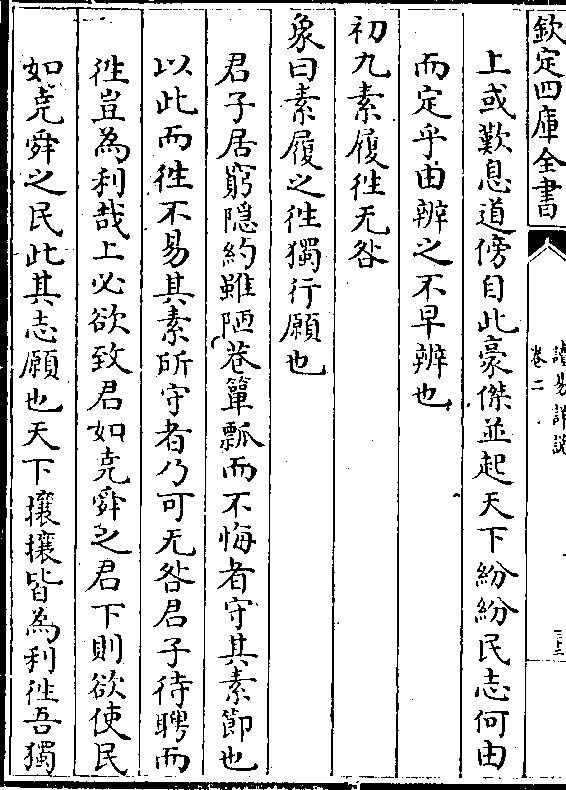 欽定四庫全書
讀易詳説
卷二
三三
上或歎息道傍自此豪傑並起天下紛紛民志何由
而定乎由辨之不早辨也
初九素履徃无咎
象曰素履之徃獨行願也
君子居窮隱約雖陋巷簞瓢而不悔者守其素節也
以此而徃不易其素所守者乃可无咎君子待聘而
徃豈為利哉上必欲致君如堯舜之君下則欲使民
如堯舜之民此其志願也天下攘攘皆為利徃吾獨